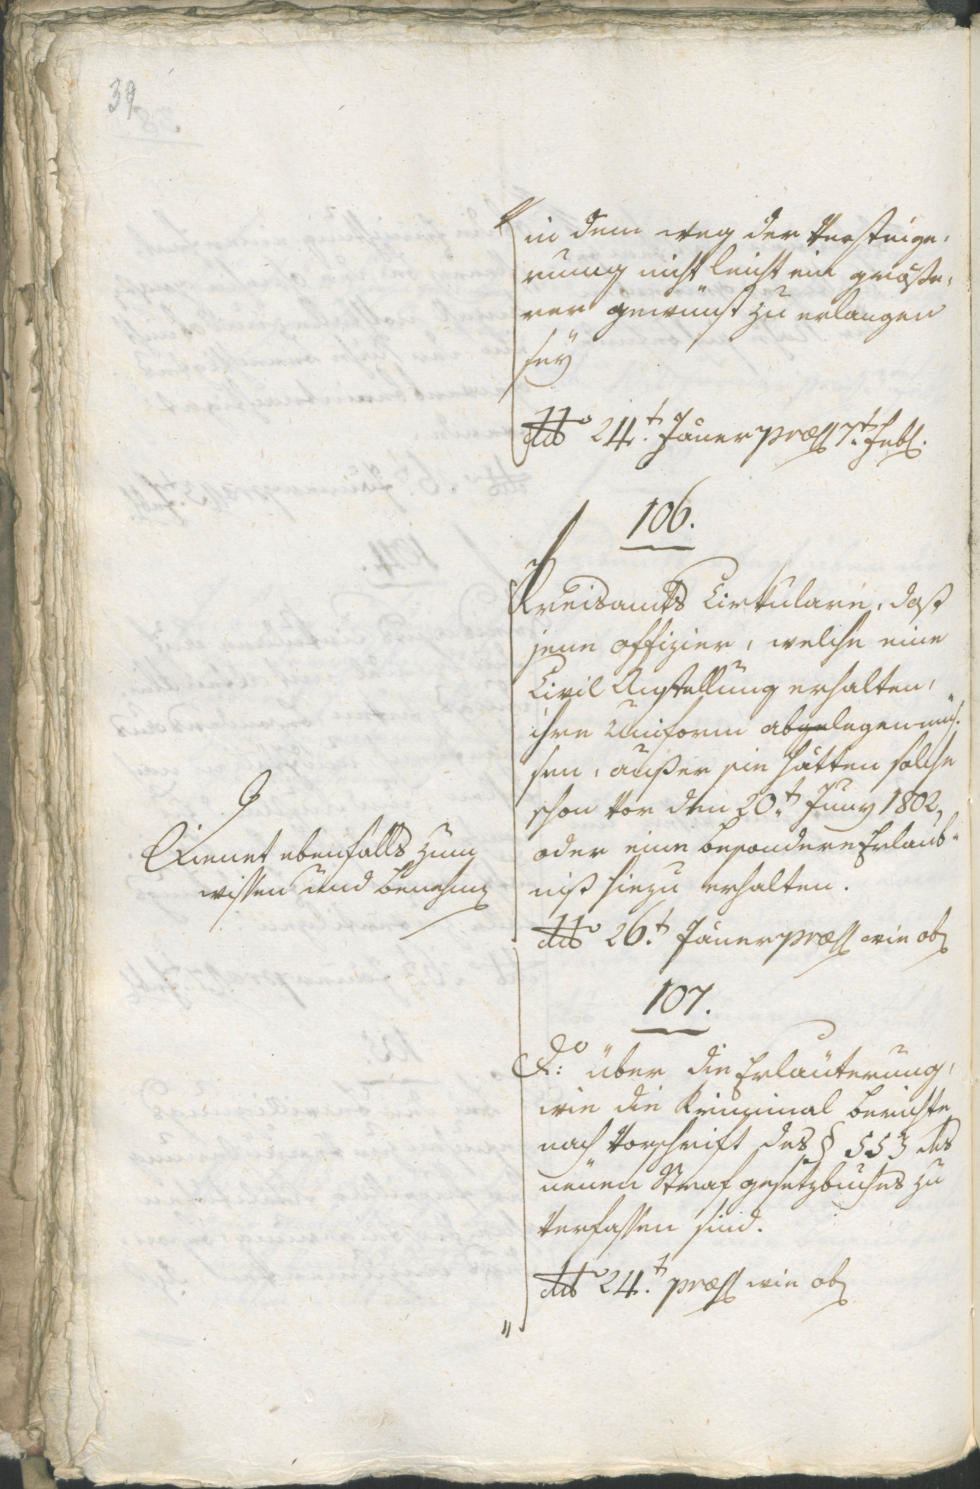 39
in dem weg der Versteige,
rung nicht leicht ein größe,
rer gewinnst zu erlangen
seÿ
ddto 24.t Jäner præss 7.t Febr.
106.
Kreisamts Cirkulare, daß
jene offizier, welche eine
Civil Anstellung erhalten,
ihre Uniform abgelegen müs,
sen, außer sie hätten solche
schon vor den 20.t Juny 1802,
oder eine besondere Erlaub,
niß hiezu erhalten.
ddto 26.t Jäner præss wie ob
Dienet ebenfalls zum
wissen und benehmen
107.
Do: über die Erläuterung,
wie die Kriminal berichte
nach Vorschrift des § 553 des
neuen Strafgesetzbuches zu
verfassen sind.
ddto 24.t præss wie ob